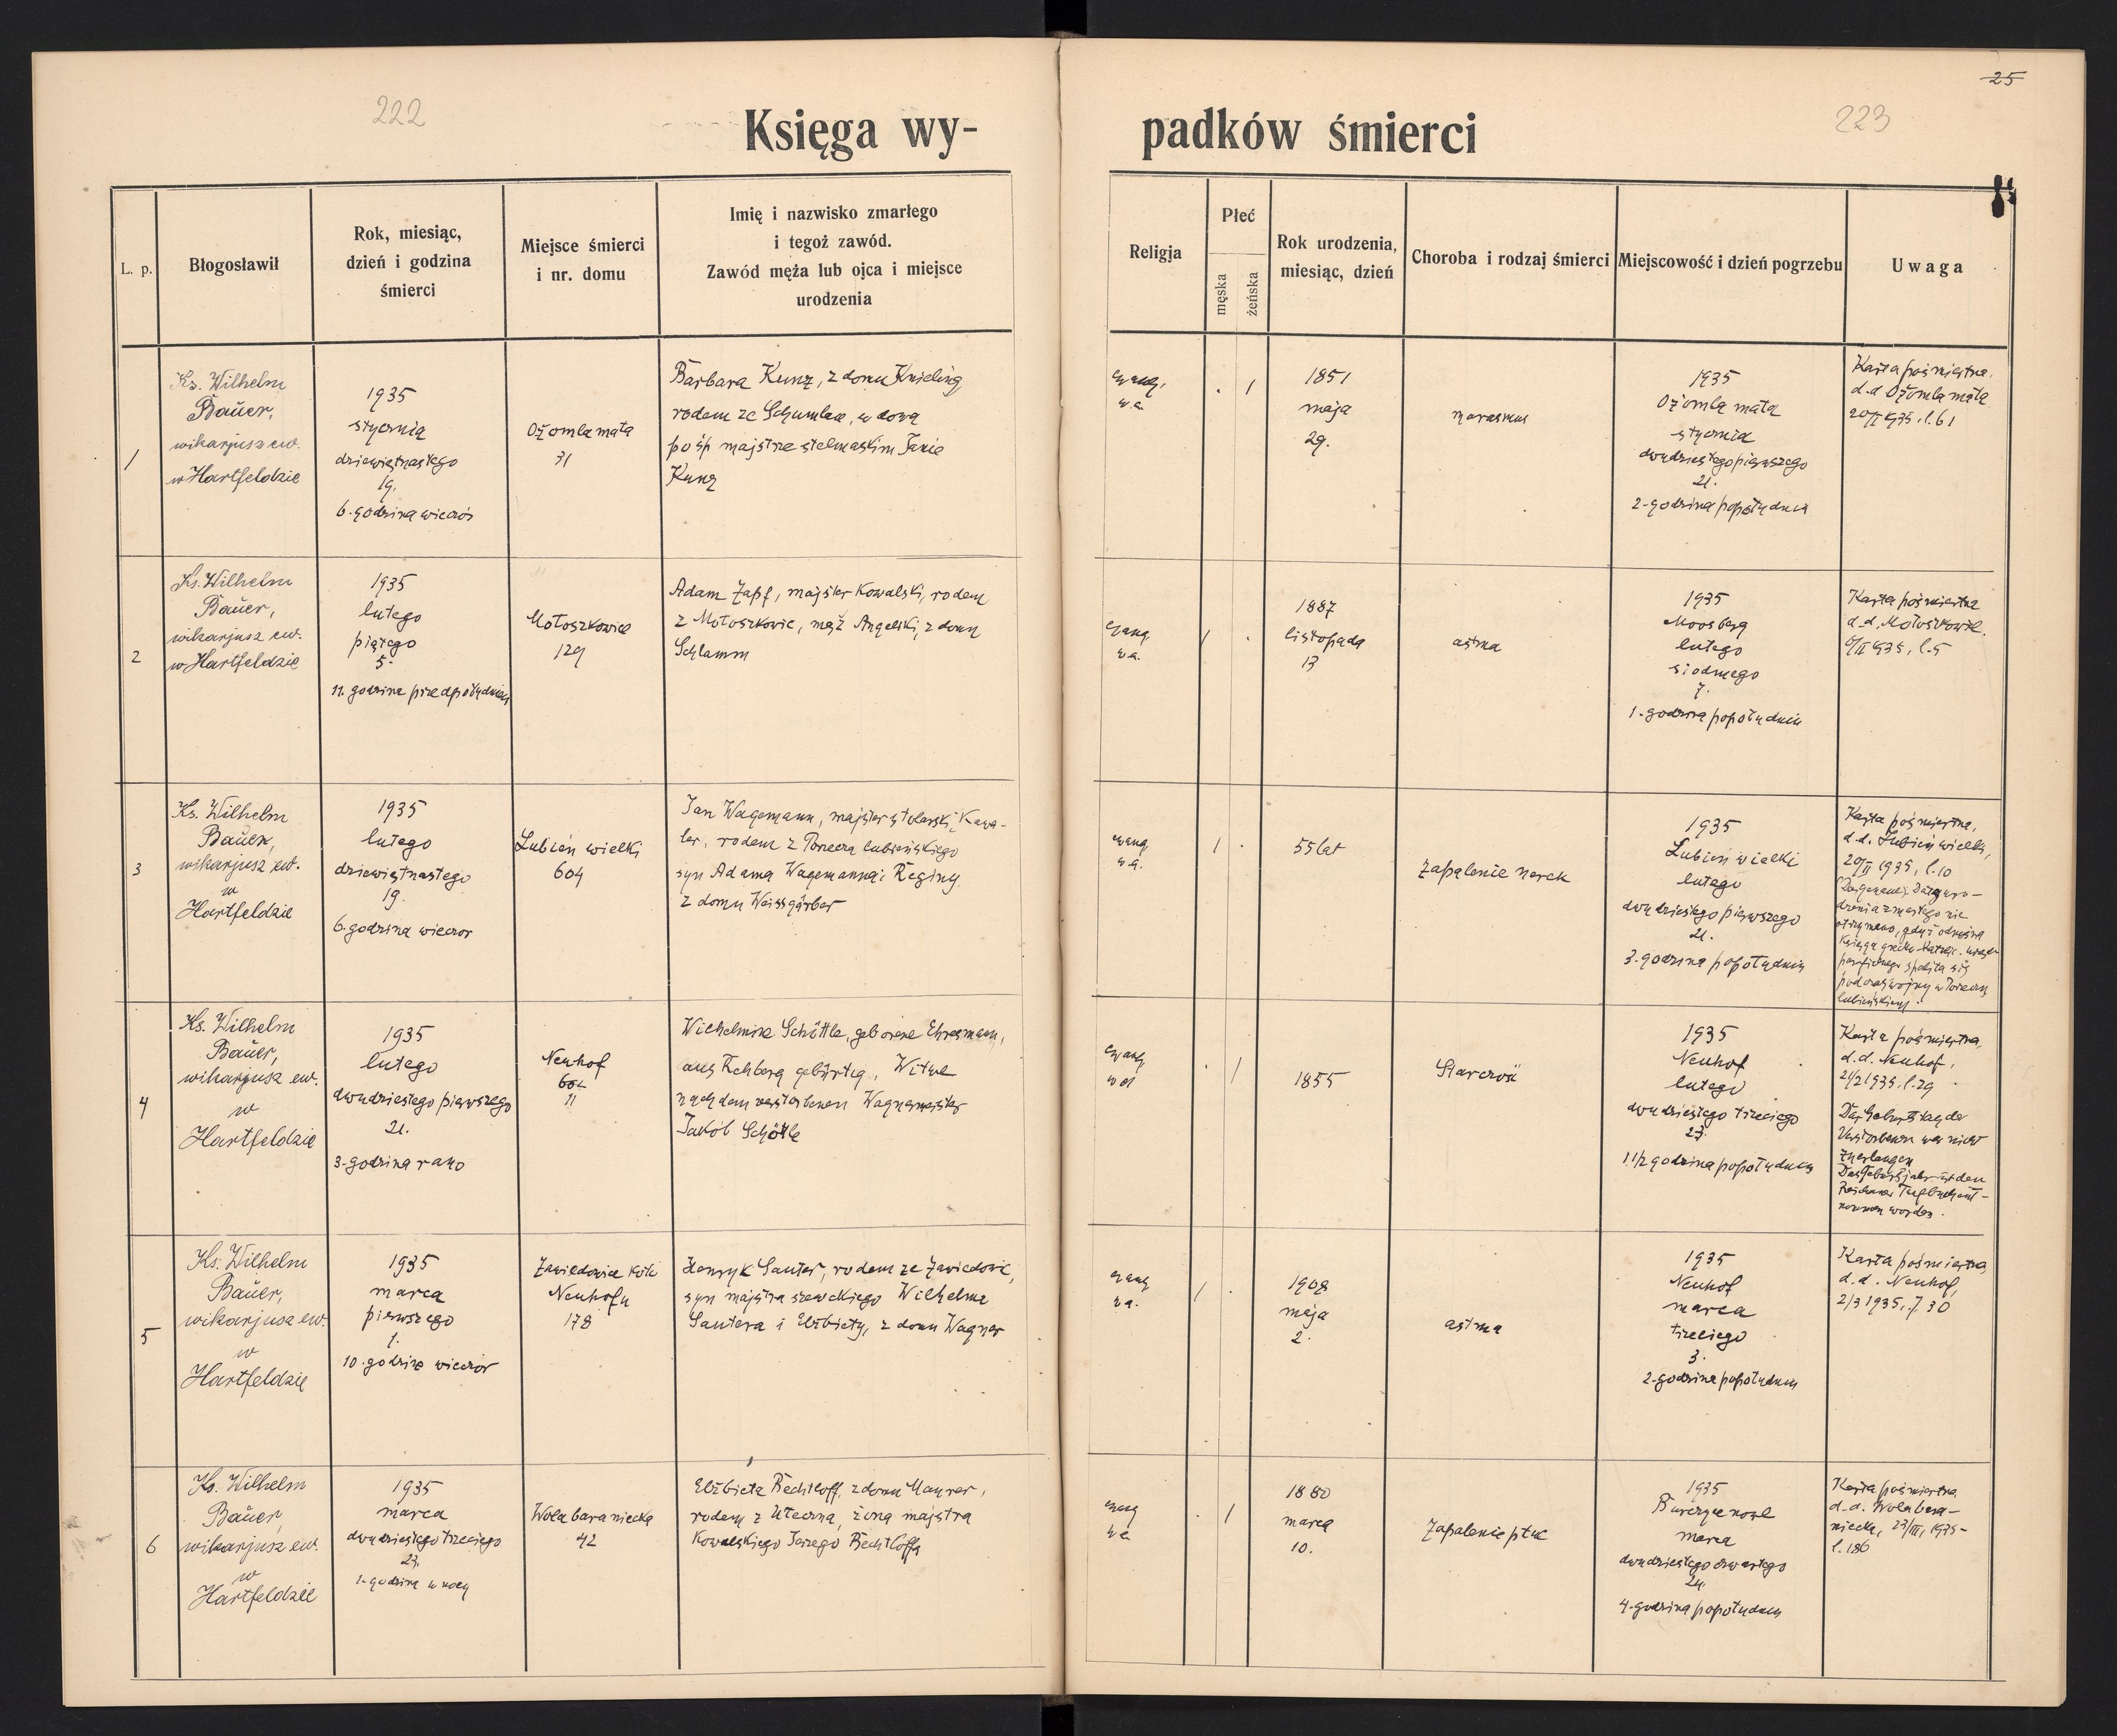 25
222
223
Księga wy-
padków śmierci
L. p.
Błogosławił
Rok, miesiąc,
dzień i godzina
śmierci
Miejsce śmierci
i nr. domu
Imię i nazwisko zmarłego
i tegoż zawód.
Zawód męża lub ojca i miejsce
urodzenia
Religja
Płeć
męska
żeńska
Rok urodzenia,
miesiąc, dzień
Choroba i rodzaj śmierci
Miejscowość i dzień pogrzebu
Uwaga
1
Ks. Wilhelm
Bauer,
wikarjusz ew.
w Hartfeldzie
1935
stycznia
dziewiętnastego
19.
6. godzina wieczór
Ożomla mała
31
Barbara Kunz, z domu Knieling
rodem ze Schumlau, wdowa
po śp majstrze stelmaskim Janie
Kunz
ewang.
w.a.
. 1
1851
maja
29.
marasmus
1935
Ożomla mała
stycznia
dwudziestego pierwszego
21.
2-godzina popołudniu
Karta pośmiertna.
d.d Ożomla mała
20/I 1935, l. 61
2
Ks. Wilhelm
Bauer,
wikarjusz ew.
w Hartfeldzie
1935
lutego
piątego
5.
11. godzina przedpołudniem
Mołoszkowice
129
Adam Zapf, majster kowalski, rodem
z Mołoszkowic, mąż Angelski, z domu
Schlamm
ewang
w.a.
1 .
1887
listopada
13
astma
1935
Moosberg
lutego
siódmego
7.
1. godzina popołudniu
Karta pośmiertna
d.d. Mołoszkowice.
6/II 1935, l. 5
3
Ks. Wilhelm
Bauer,
wikarjusz ew.
w
Hartfeldzie
1935
lutego
dziewiętnastego
19.
6. godzina wieczor
Lubień wielki
604
Jan Wagemann, majster stolarski, kawa-
ler, rodem z Porzecza lubieńskiego
syn Adama Wagemanna i Reginy
z domu Weissgärber
ewang
w.a.
1 .
55 lat
zapalenie nerek
1935
Lubień wielki
lutego
dwudziestego pierwszego
21.
3. godzina popołudniu
Karta pośmiertna,
d.d. Lubień wielki,
20/II 1935, l. 10
Data uro-
dzenia zmarłego nie
otrzymano, gdyż odnośna
księga grecko katolic. urzędu
parafialnego spaliła się
podczas wojny w Porzeczu
lubieńskiem.
4
Ks. Wilhelm
Bauer,
wikarjusz ew.
w
Hartfeldzie
1935
lutego
dwudziestego pierwszego
21.
3. godzina rano
Neuhof
11
Wilhelmine Schöttle, geborene Ehresmann,
aus Rehberg gebürtig, Witwe
nach dem verstorbenen Wagnermeister
Jakob Schöttle
ewang
. 1
1855
Starczość
1935
Neuhof
lutego
dwudziestego trzeciego
23.
1 1/2 godzina popołudniu
Karta pośmiertna,
d.d. Neuhof,
21/2 1935, l. 29
Das Geburtstag der
Verstorbenen war nicht
zu erlangen
Das Geburtsjahr ist dem
Reichauer Taufbuch ent-
nommen worden.
5
Ks. Wilhelm
Bauer,
wikarjusz ew.
w
Hartfeldzie
1935
marca
pierwszego
1.
10. godzina wieczór
Zawiedowice koło
Neuhofu
178
Henryk Sauter, rodem ze Zawiedowic,
syn majstra szewckiego Wilhelma
Sautera i Elżbiety, z domu Wagner
ewang
w.a.
1 .
1908
maja
2.
astma
1935
Neuhof
marca
trzeciego
3.
2. godzina popołudniu
Karta pośmiertna
d.d. Neuhof,
2/3 1935, l. 30
6
Ks. Wilhelm
Bauer,
wikarjusz ew.
w
Hartfeldzie
1935
marca
dwudziestego trzeciego
23.
1. godzina w nocy
Wola baraniecka
42
Elżbieta Bechtloff, z domu Maurer,
rodem z Ugartsthal, żona majstra
kowalskiego Jerzego Bechtloffa
ewang
w.a.
. 1
1880
marca
10.
Zapalenie płuc
1935
Burczyce nowe
marca
dwudziestego czwartego
24.
4. godzina popołudniu
Karta pośmiertna
d.d. Wola bara-
niecka, 23/III, 1935-
l. 186